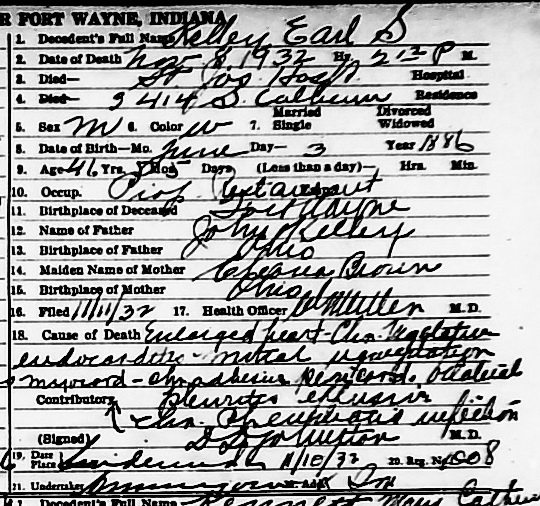 R FORT WAYNE, INDIANA
1. Decedent's Full Name Kelley Earl S
2. Date of Death Nov 8, 1932 Hr. 2 12 P M.
3. Died— St. Jos. Hosp. Hospital
4. Died— 3414 S. Calhoun Residence
Married Divorced
5. Sex M 6. Color W 7. Single Widowed
8. Date of Birth—Mo. June Day— 3 Year 1886
9. Age 46 Yrs. 5 Mos. Days (Less than a day)— Hrs. Min.
10. Occup. Prop Restaurant
11. Birthplace of Deceased Fort Wayne
12. Name of Father John Kelley
13. Birthplace of Father Ohio
14. Maiden Name of Mother Brown
15. Birthplace of Mother Ohio
16. Filed 11/11/32 17. Health Officer M. D.
18. Cause of Death Enlarged heart - Chr. Vegetative
endocarditis - mitral regurgitation
myocard - chr adhesive pericard.
Contributory Pleuritis
Chr. Rheumatic infection
(Signed) M. D.
19. Date Place Lindenwood 11/10/32 20. Reg. No. 1008
21. Undertaker & Son
1. Decedent's Full Name Mary